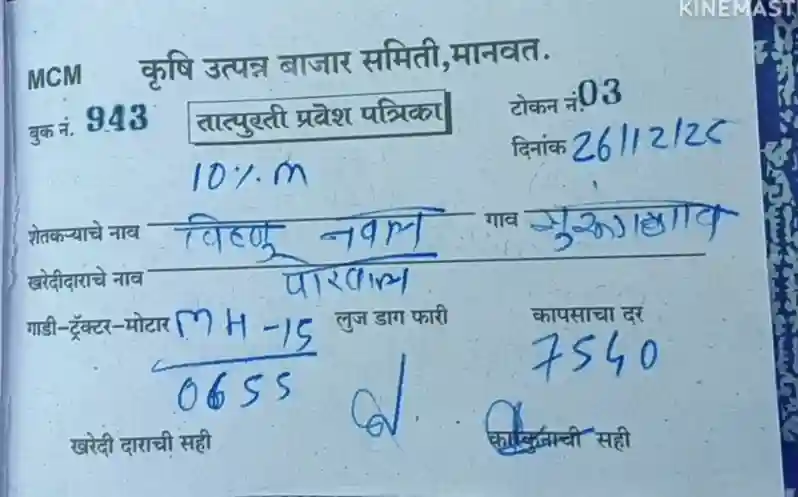 KINEMAST
MCM कृषि उत्पन्न बाजार समिती,मानवत.
बुक नं. 943 तात्पुरती प्रवेश पत्रिका टोकन नं.03
दिनांक 26/12/25
10%.m
शेतकऱ्याचे नाव विष्णु नवल गाव
खरेदीदाराचे नाव पोरवाल
गाडी-ट्रॅक्टर-मोटार MH-15 लुज डाग फारी कापसाचा दर
0655 7540
खरेदी दाराची सही सही